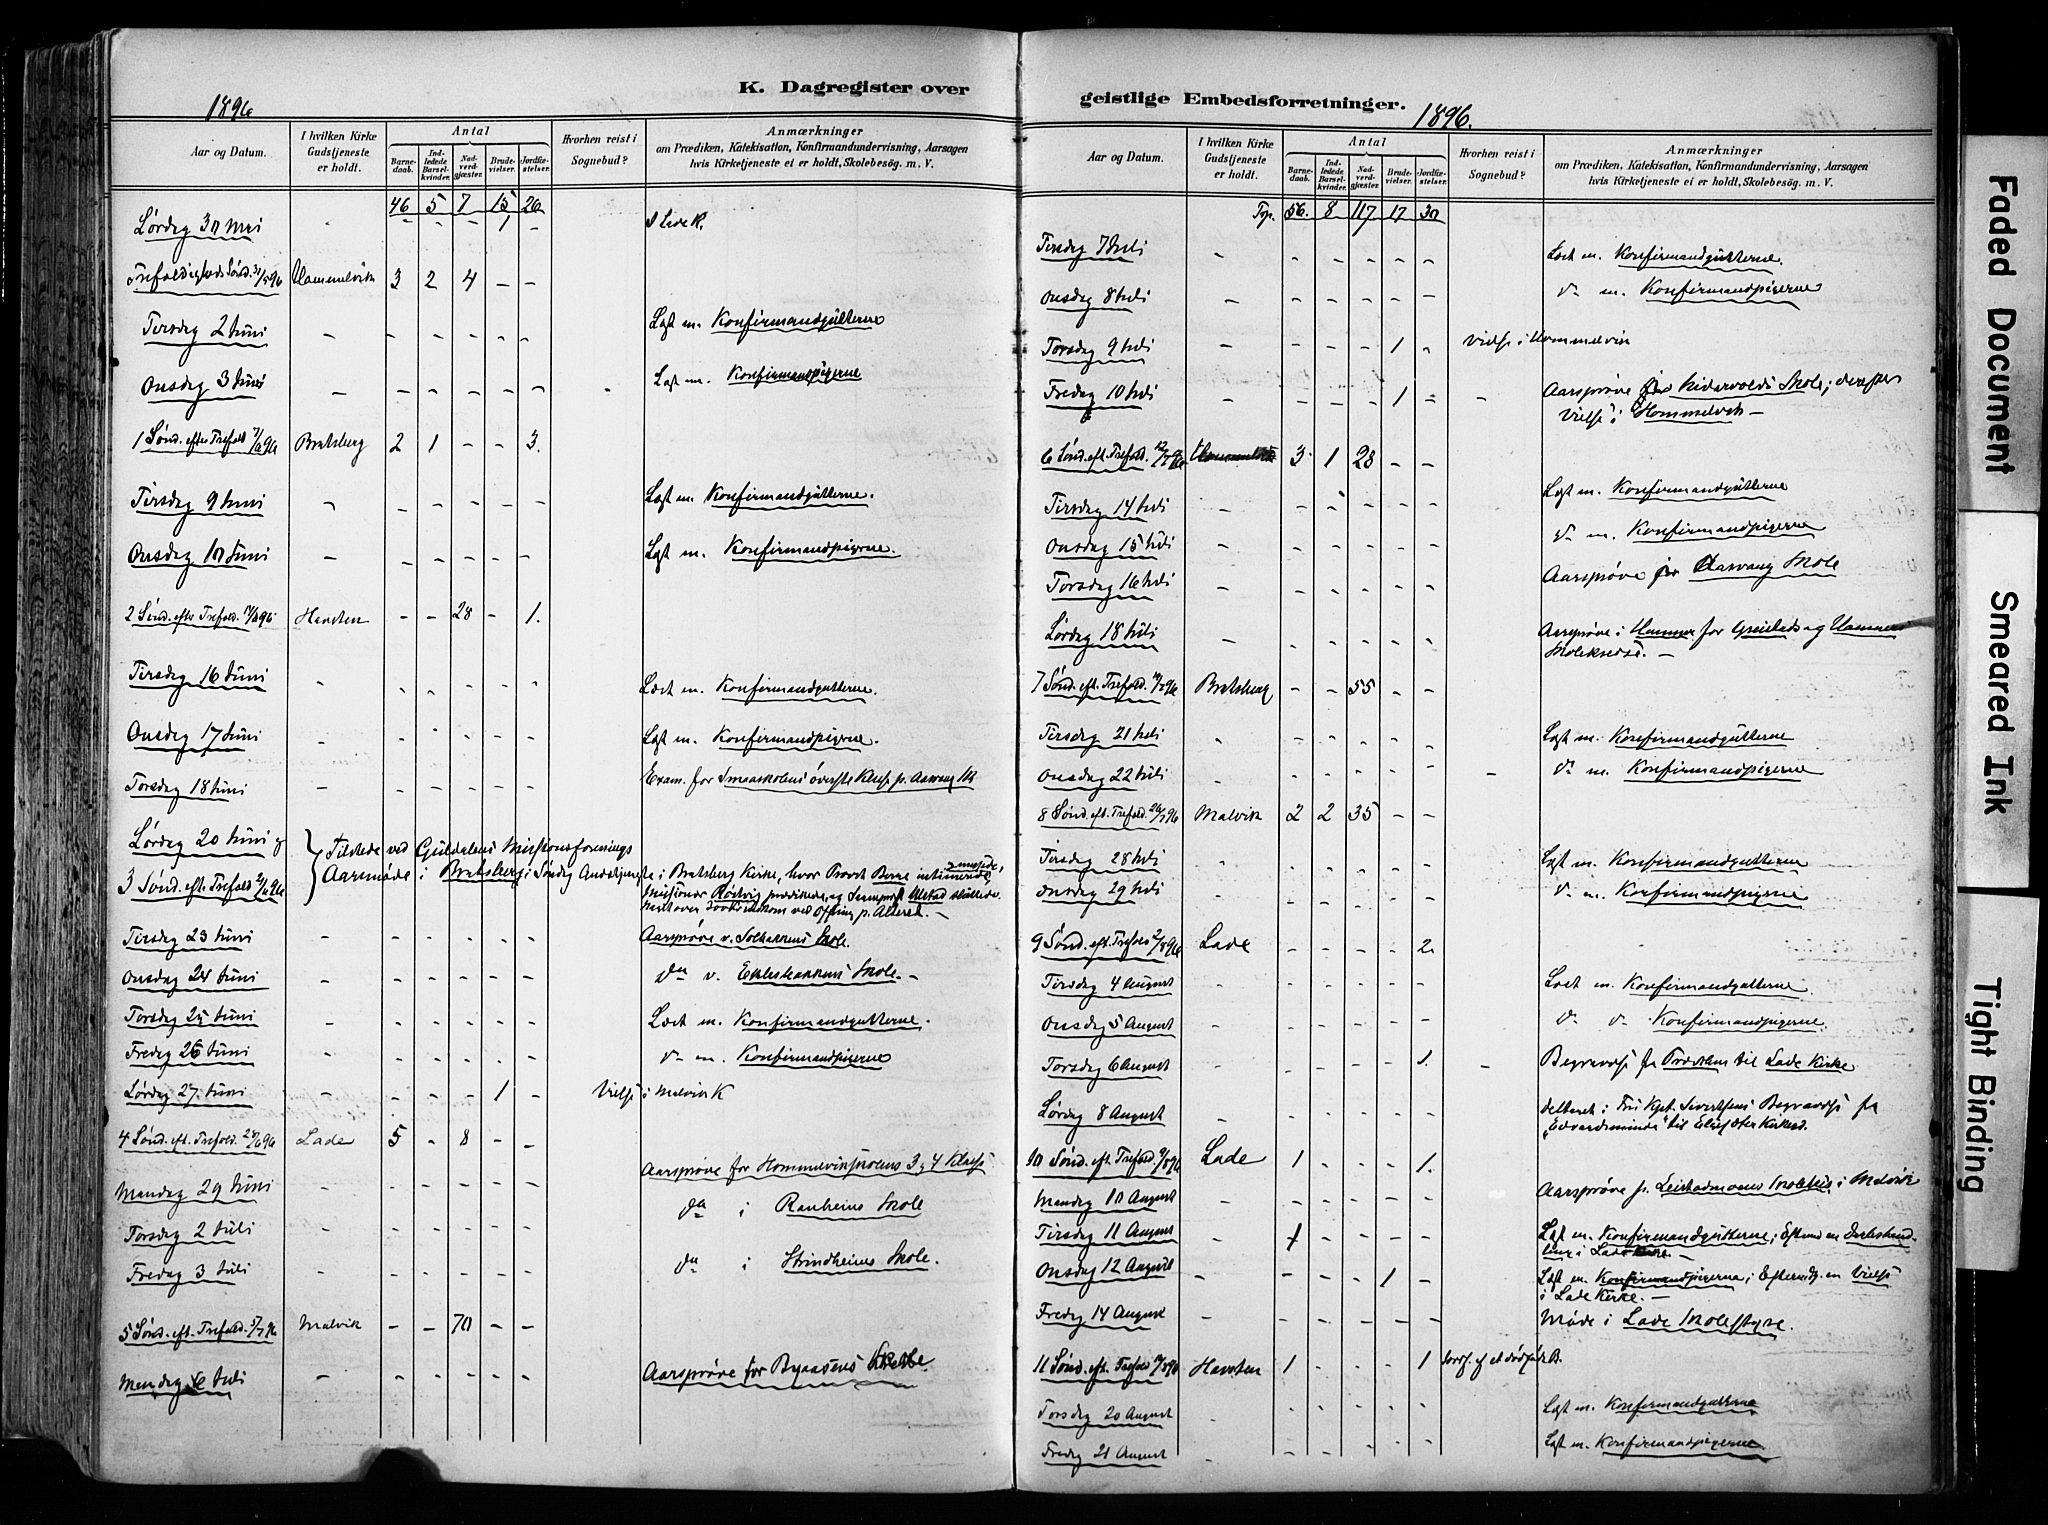 K. Dagregister over
1896
Aar og Datum. I hvilken Kirke Gudstjeneste er holdt. Antal Barnedaab. Indledede Barselkvinder. Nadverdgjæster. Brudevielser. Jordfæstelser. Hvorhen reist i Sognebud? Anmærkninger om Prædiken, Katekisation, Konfirmandundervisning, Aarsagen hvis Kirketjeneste ei er holdt, Skolebesøg. m. V.
46 5 7 15 26
Lørdag 30 Mai - - - 1 - I Lade K.
Trefoldigheds Sønd. 31/5 96 Hommelvik 3 2 4 - -
Tirsdag 2 Juni - - - - - - Læst m. Konfirmandgutterne
Onsdag 3 Juni - - - - - - Læst m. Konfirmandpigerne
1 Sønd. efter Trefold 7/6 96 Bratsberg 2 1 - - 3.
Tirsdag 9 Juni - - - - - - Læst m. Konfirmandgutterne.
Onsdag 10 Juni - - - - - - Læst m. Konfirmandpigerne.
2 Sønd. efter Trefold. 14/6 96 Havsten - - 28 - 1.
Tirsdag 16 Juni - - - - - - Læst m. Konfirmandgutterne.
Onsdag 17 Juni - - - - - - Læst m. Konfirmandpigerne.
Torsdag 18 Juni - - - - - - Exam. for Smaaskolens øverste Klasse p. Aasvang Sk
Lørdag 20 Juni og
3 Sønd. eft. Trefold 21/6 96 Tilstede ved Guldalens Missionsforenings
Aarsmøde i Bratsberg; Søndag Gudstjeneste i Bratsberg Kirke, hvor Provst
Missionær Rødvig prædikede, og Sognepræst
ved Ofring p. Alteret. -
Tirsdag 23 Juni - - - - - - Aarsprøve v. Solbakkens Skole.
Onsdag 24 Juni - - - - - - do v. Eklesbakkens Skole. -
Torsdag 25 Juni - - - - - - Læst m. Konfirmandgutterne.
Fredag 26 Juni - - - - - - do m. Konfirmandpigerne
Lørdag 27 Juni - - - - 1 - Vielse i Malvik K
4 Sønd. eft. Trefold. 28/6 96 Lade 5 - 8 - -
Mandag 29 Juni - - - - - - Aarsprøve for Hommelvikskolens 3 og 4 Klasse
Torsdag 2 Juli - - - - - - do i Ranheims Skole
Fredag 3 Juli - - - - - - do i Strindheims Skole.
5 Sønd. eft. Trefold. 5/7 96 Malvik - - 70 - -
Mandag 6 Juli - - - - - - Aarsprøve for Byaasens Skole
geistlige Embedsforretninger.
1896.
Aar og Datum. I hvilken Kirke Gudstjeneste er holdt. Antal Barnedaab. Indledede Barselkvinder. Nadverdgjæster. Brudevielser. Jordfæstelser. Hvorhen reist i Sognebud? Anmærkninger om Prædiken, Katekisation, Konfirmandundervisning, Aarsagen hvis Kirketjeneste ei er holdt, Skolebesøg. m. V.
Tsp. 56. 8 117 17 30
Tirsdag 7 Juli - - - - - - Læst m. Konfirmandgutterne.
Onsdag 8 Juli - - - - - - do m. Konfirmandpigerne
Torsdag 9 Juli - - - - 1 - Vielse i Hommelvik
Fredag 10 Juli - - - - 1 - - Aarsprøve for Nidarvolds Skole; derefter
Vielse i Hommelvik -
6 Sønd. eft. Trefold. 12/7 96 Hommelvik 3 1 28 - -
Tirsdag 14 Juli - - - - - - Læst m. Konfirmandgutterne
Onsdag 15 Juli - - - - - - do m. Konfirmandpigerne
Torsdag 16 Juli - - - - - - Aarsprøve for Aasvang Skole
Lørdag 18 Juli - - - - - - Aarsprøve i Hammer for og Hammers
Skolekredse. -
7 Sønd. eft. Trefold. 19/7 96 Bratsberg - - 55 - -
Tirsdag 21 Juli - - - - - - Læst m. Konfirmandgutterne
Onsdag 22 Juli - - - - - - - do m. Konfirmandpigerne
8 Sønd. eft. Trefold. 26/7 96 Malvik 2 2 35 - -
Tirsdag 28 Juli - - - - - - Læst m. Konfirmandgutterne
Onsdag 29 Juli - - - - - do m. Konfirmandpigerne
9 Sønd. eft. Trefold 2/8 96 Lade - - - - 2.
Tirsdag 4 August - - - - - - Læst m. Konfirmandgutterne.
Onsdag 5 August - - - - - - do do Konfirmandpigerne.
Torsdag 6 August - - - - - 1. - Begravelse fra til Lade Kirke
Lørdag 8 August - - - - - - deltaget i Fru Kpt. Sivertsens Begravelse fra
"Edvardsminde" til
10 Sønd. eft. Trefold 9/8 96 Lade 1 - - - 1.
Mandag 10 August - - - - - Aarsprøve p. Leistadmoens i Malvik
Tirsdag 11 August - 1 - - - - Læst m. Konfirmandgutterne; Efterm. en
i Lade Kirke. -
Onsdag 12 August - - - - 1 - Læst m. Konfirmandpigerne; Eftermdg. en Vielse
i Lade Kirke. -
Fredag 14 August - - - - - - Møde i Lade Skolestyre.
11 Sønd. eft. Trefold 16/8 96 Havsten 1 - - - 1 Jordf. af et dødfødt B.
Torsdag 20 August - - - - - - Læst m. Konfirmandgutterne
Fredag 21 August - - - - - - Læst m. Konfirmandpigerne
Faded Document
Smeared Ink
Tight Binding